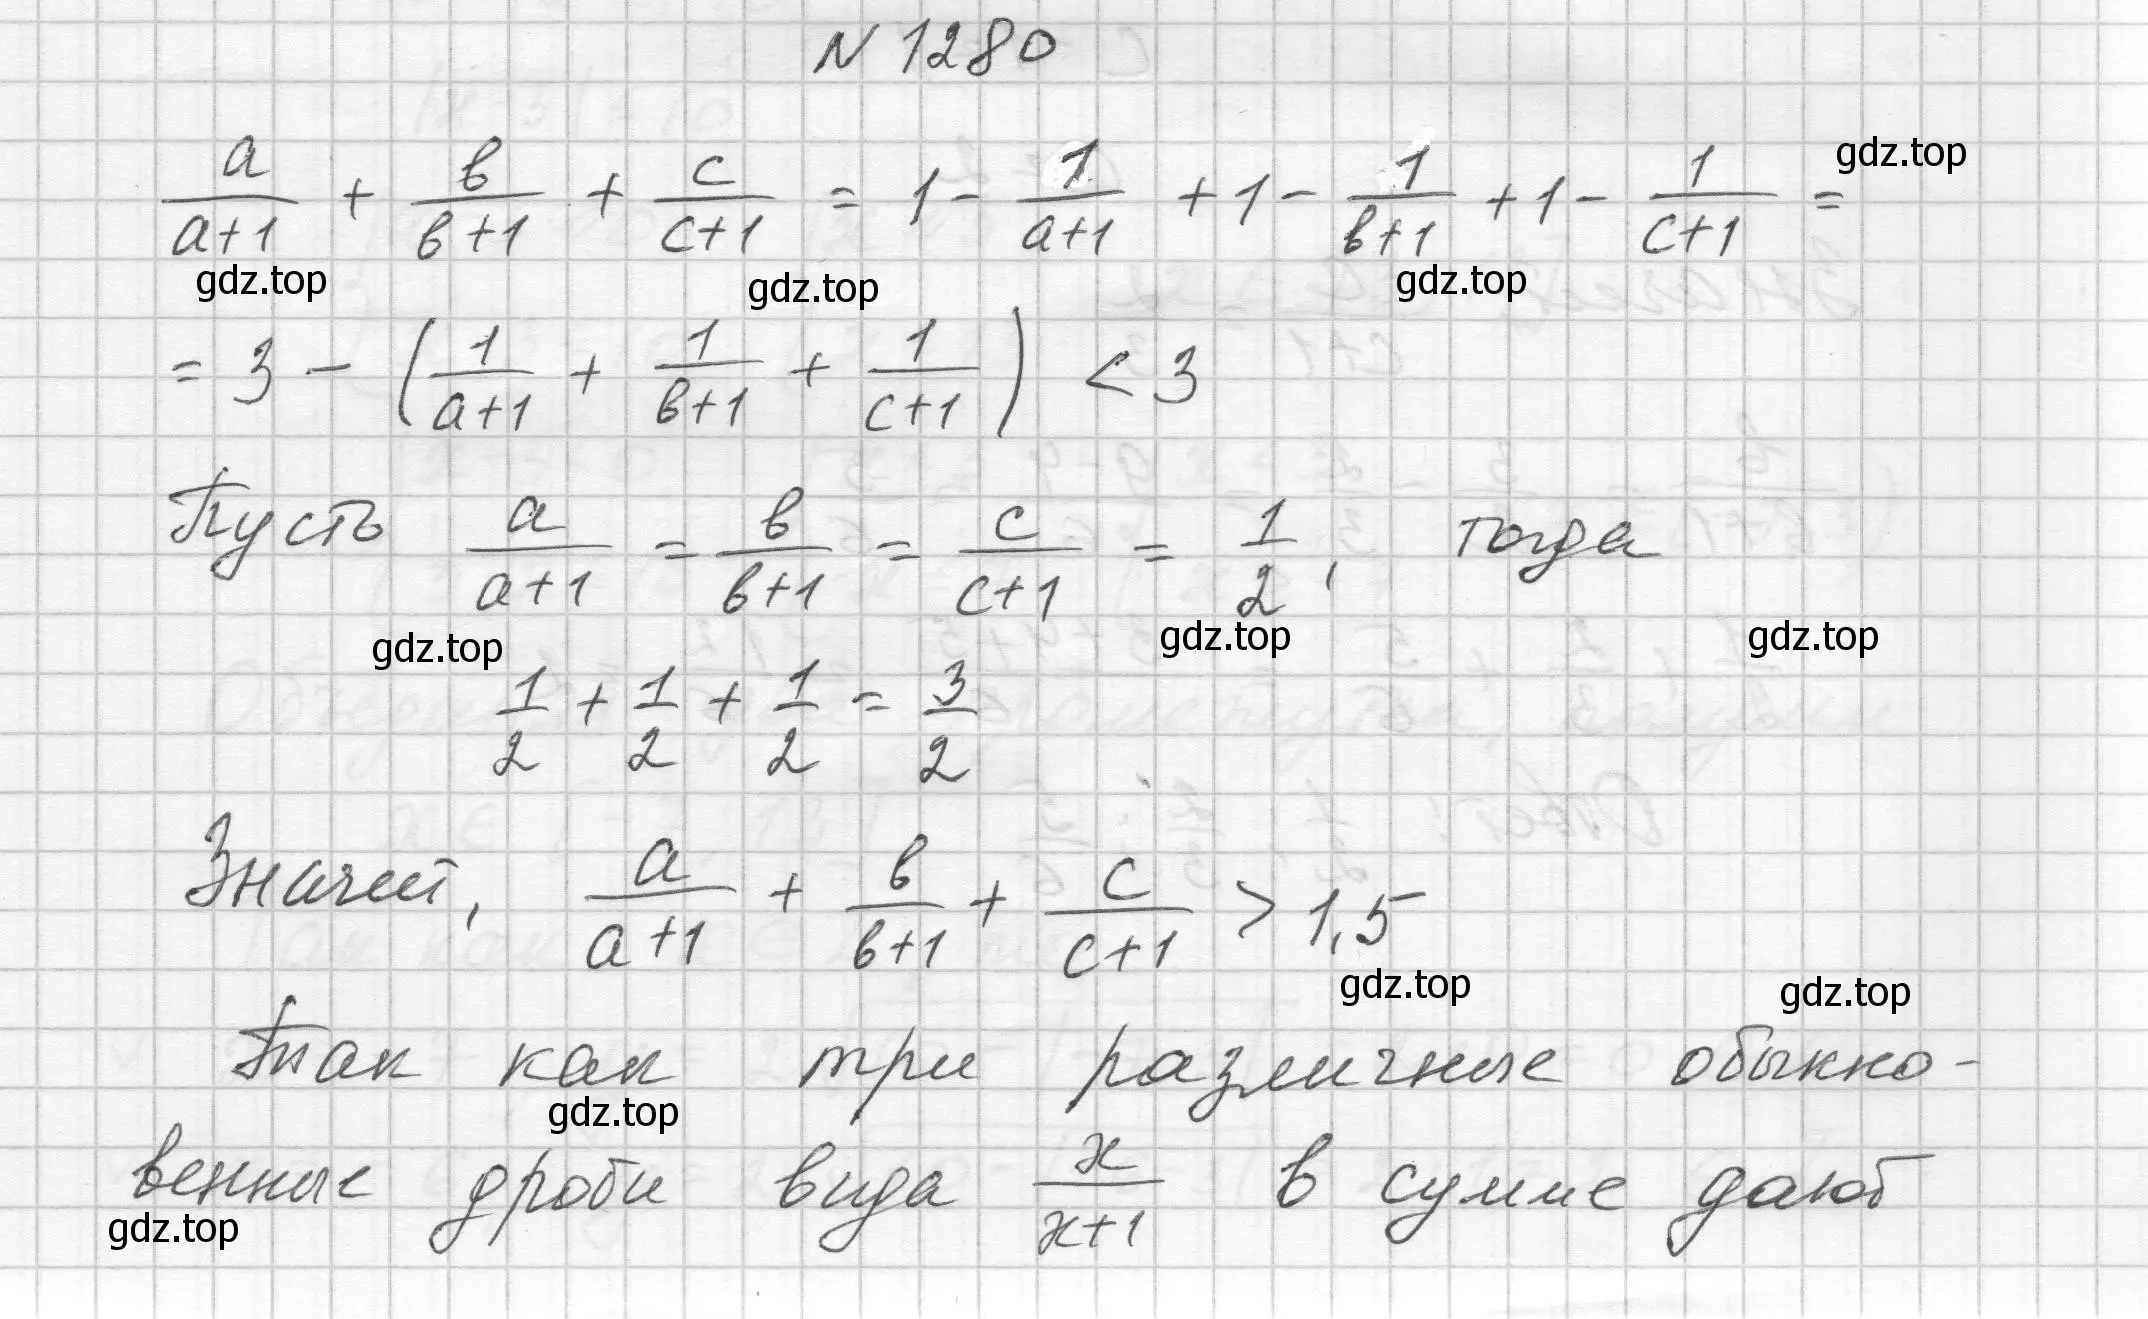 N 1280
a/(a+1) + в/(в+1) + c/(c+1) = 1 - 1/(a+1) + 1 - 1/(в+1) + 1 - 1/(c+1) =
gdz.top
gdz.top gdz.top gdz.top
= 3 - (1/(a+1) + 1/(в+1) + 1/(c+1)) < 3
Пусть a/(a+1) = в/(в+1) = c/(c+1) = 1/2, тогда
gdz.top gdz.top gdz.top
1/2 + 1/2 + 1/2 = 3/2
Значит, a/(a+1) + в/(в+1) + c/(c+1) > 1,5
gdz.top gdz.top
Так как три различные обыкно-
gdz.top
венные дроби вида x/(x+1) в сумме дают
gdz.top